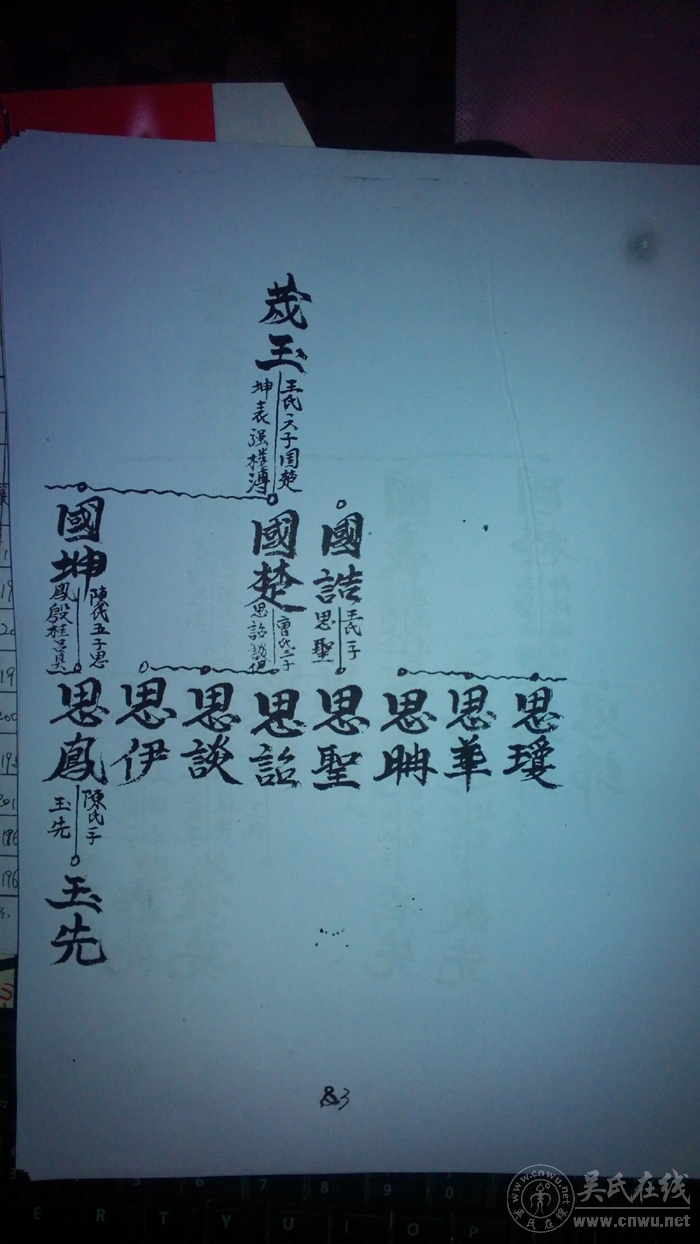 茂玉
王氏六子國楚
坤表强楼溥
國誥
王氏一子
思聖
國楚
曹氏三子
思詔談伊
國坤
陳氏五子思
鳳殷桂呂真
思瓊
思華
思聃
思聖
思詔
思談
思伊
思鳳
陳氏一子
玉先
玉先
83
吴氏在线
www.cnwu.net